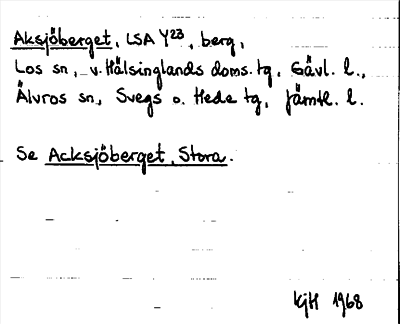 Aksjöberget, LSA Y23, berg,
Los sn, v. Hälsinglands doms. tg, Gävl. l.,
Älvros sn, Svegs o. Hede tg, Jämtl. l.
Se Acksjöberget, Stora.
KjH 1968